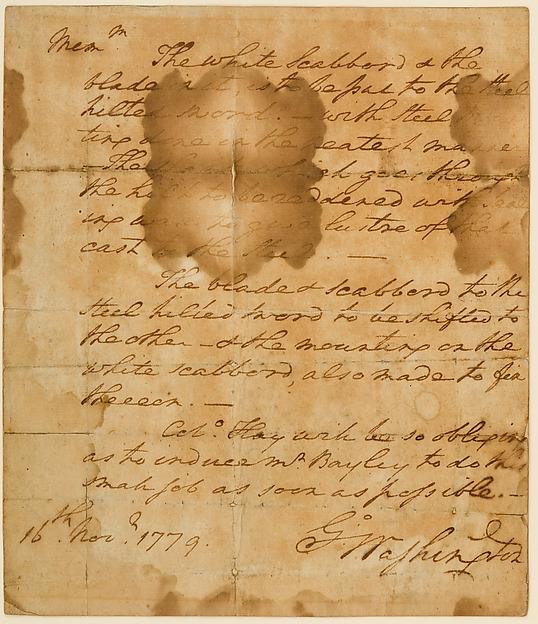 Mem^m
The white Scabbord & the
blade in it, is to be put to the Steel
hilted sword. — with Steel
ting done in the neatest manner
The which goes through
the to be reddened with
ing to give lustre of that
cast to the Steel. —
The blade & scabbord, to the
steel hilted sword to be shifted to
the other — & the mounting on the
white scabbord, also made to fix
thereon. —
Col^o. Hay will be so obliging
as to induce M^r Bayley to do this
small job as soon as possible. —
16^th Nov^r. 1779.
G^o Washington